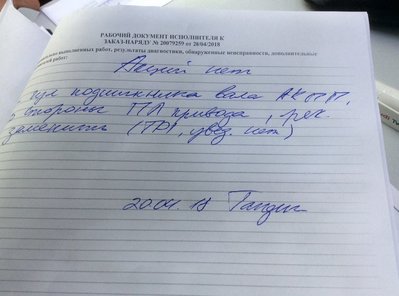 РАБОЧИЙ ДОКУМЕНТ ИСПОЛНИТЕЛЯ К
ЗАКАЗ-НАРЯДУ № 20079259 от 28/04/2018
выполненных работ, результаты диагностики, обнаруженные неисправности, дополнительные
работ:
Акций нет
Гул подшипника вала АКПП,
стороны ПЛ привода, рек.
заменить (ТР), нет)
20.04.18